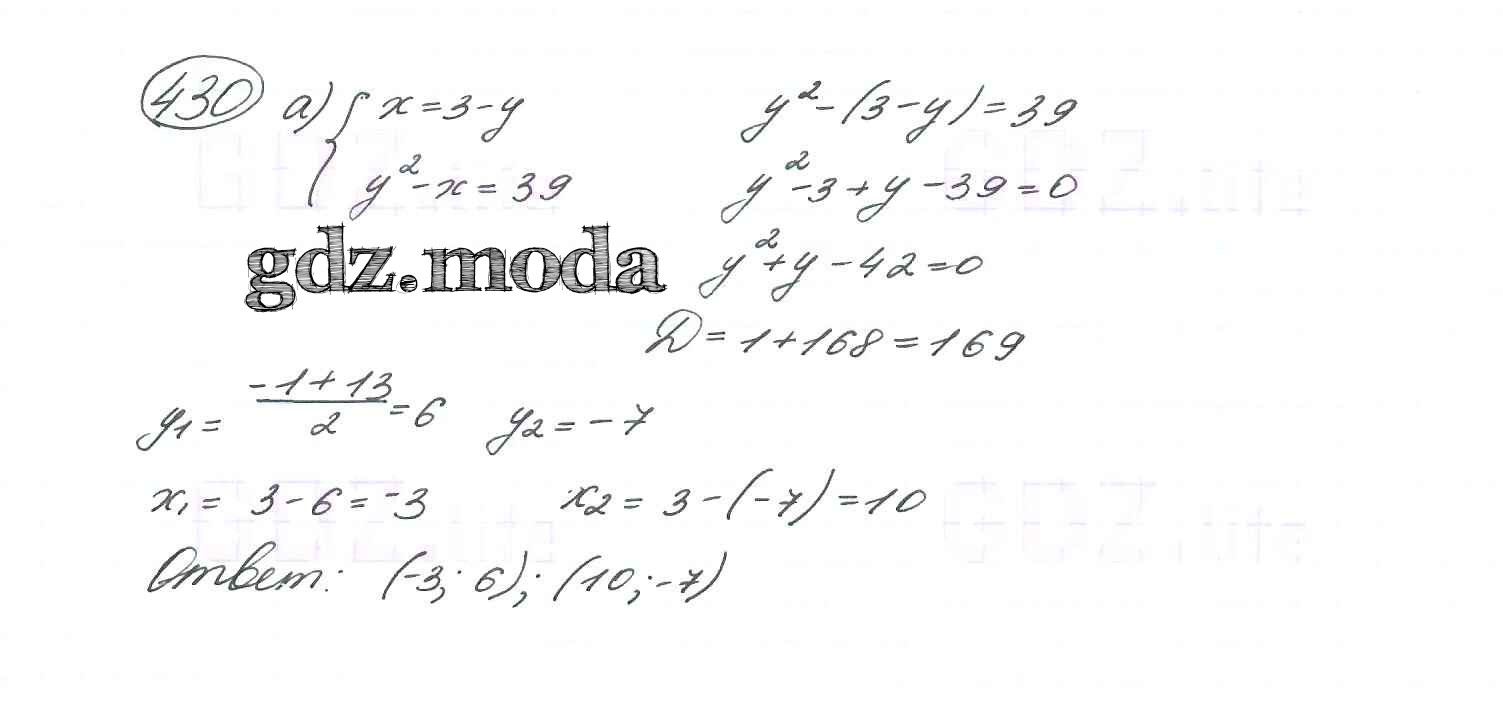 430 а) { x = 3 - y
y² - x = 39
y² - (3 - y) = 39
y² - 3 + y - 39 = 0
gdz.moda
y² + y - 42 = 0
D = 1 + 168 = 169
y₁ = (-1 + 13)/2 = 6 y₂ = -7
x₁ = 3 - 6 = -3 x₂ = 3 - (-7) = 10
Ответ: (-3; 6); (10; -7)
GDZ.life
GDZ.life
GDZ.life
GDZ.life